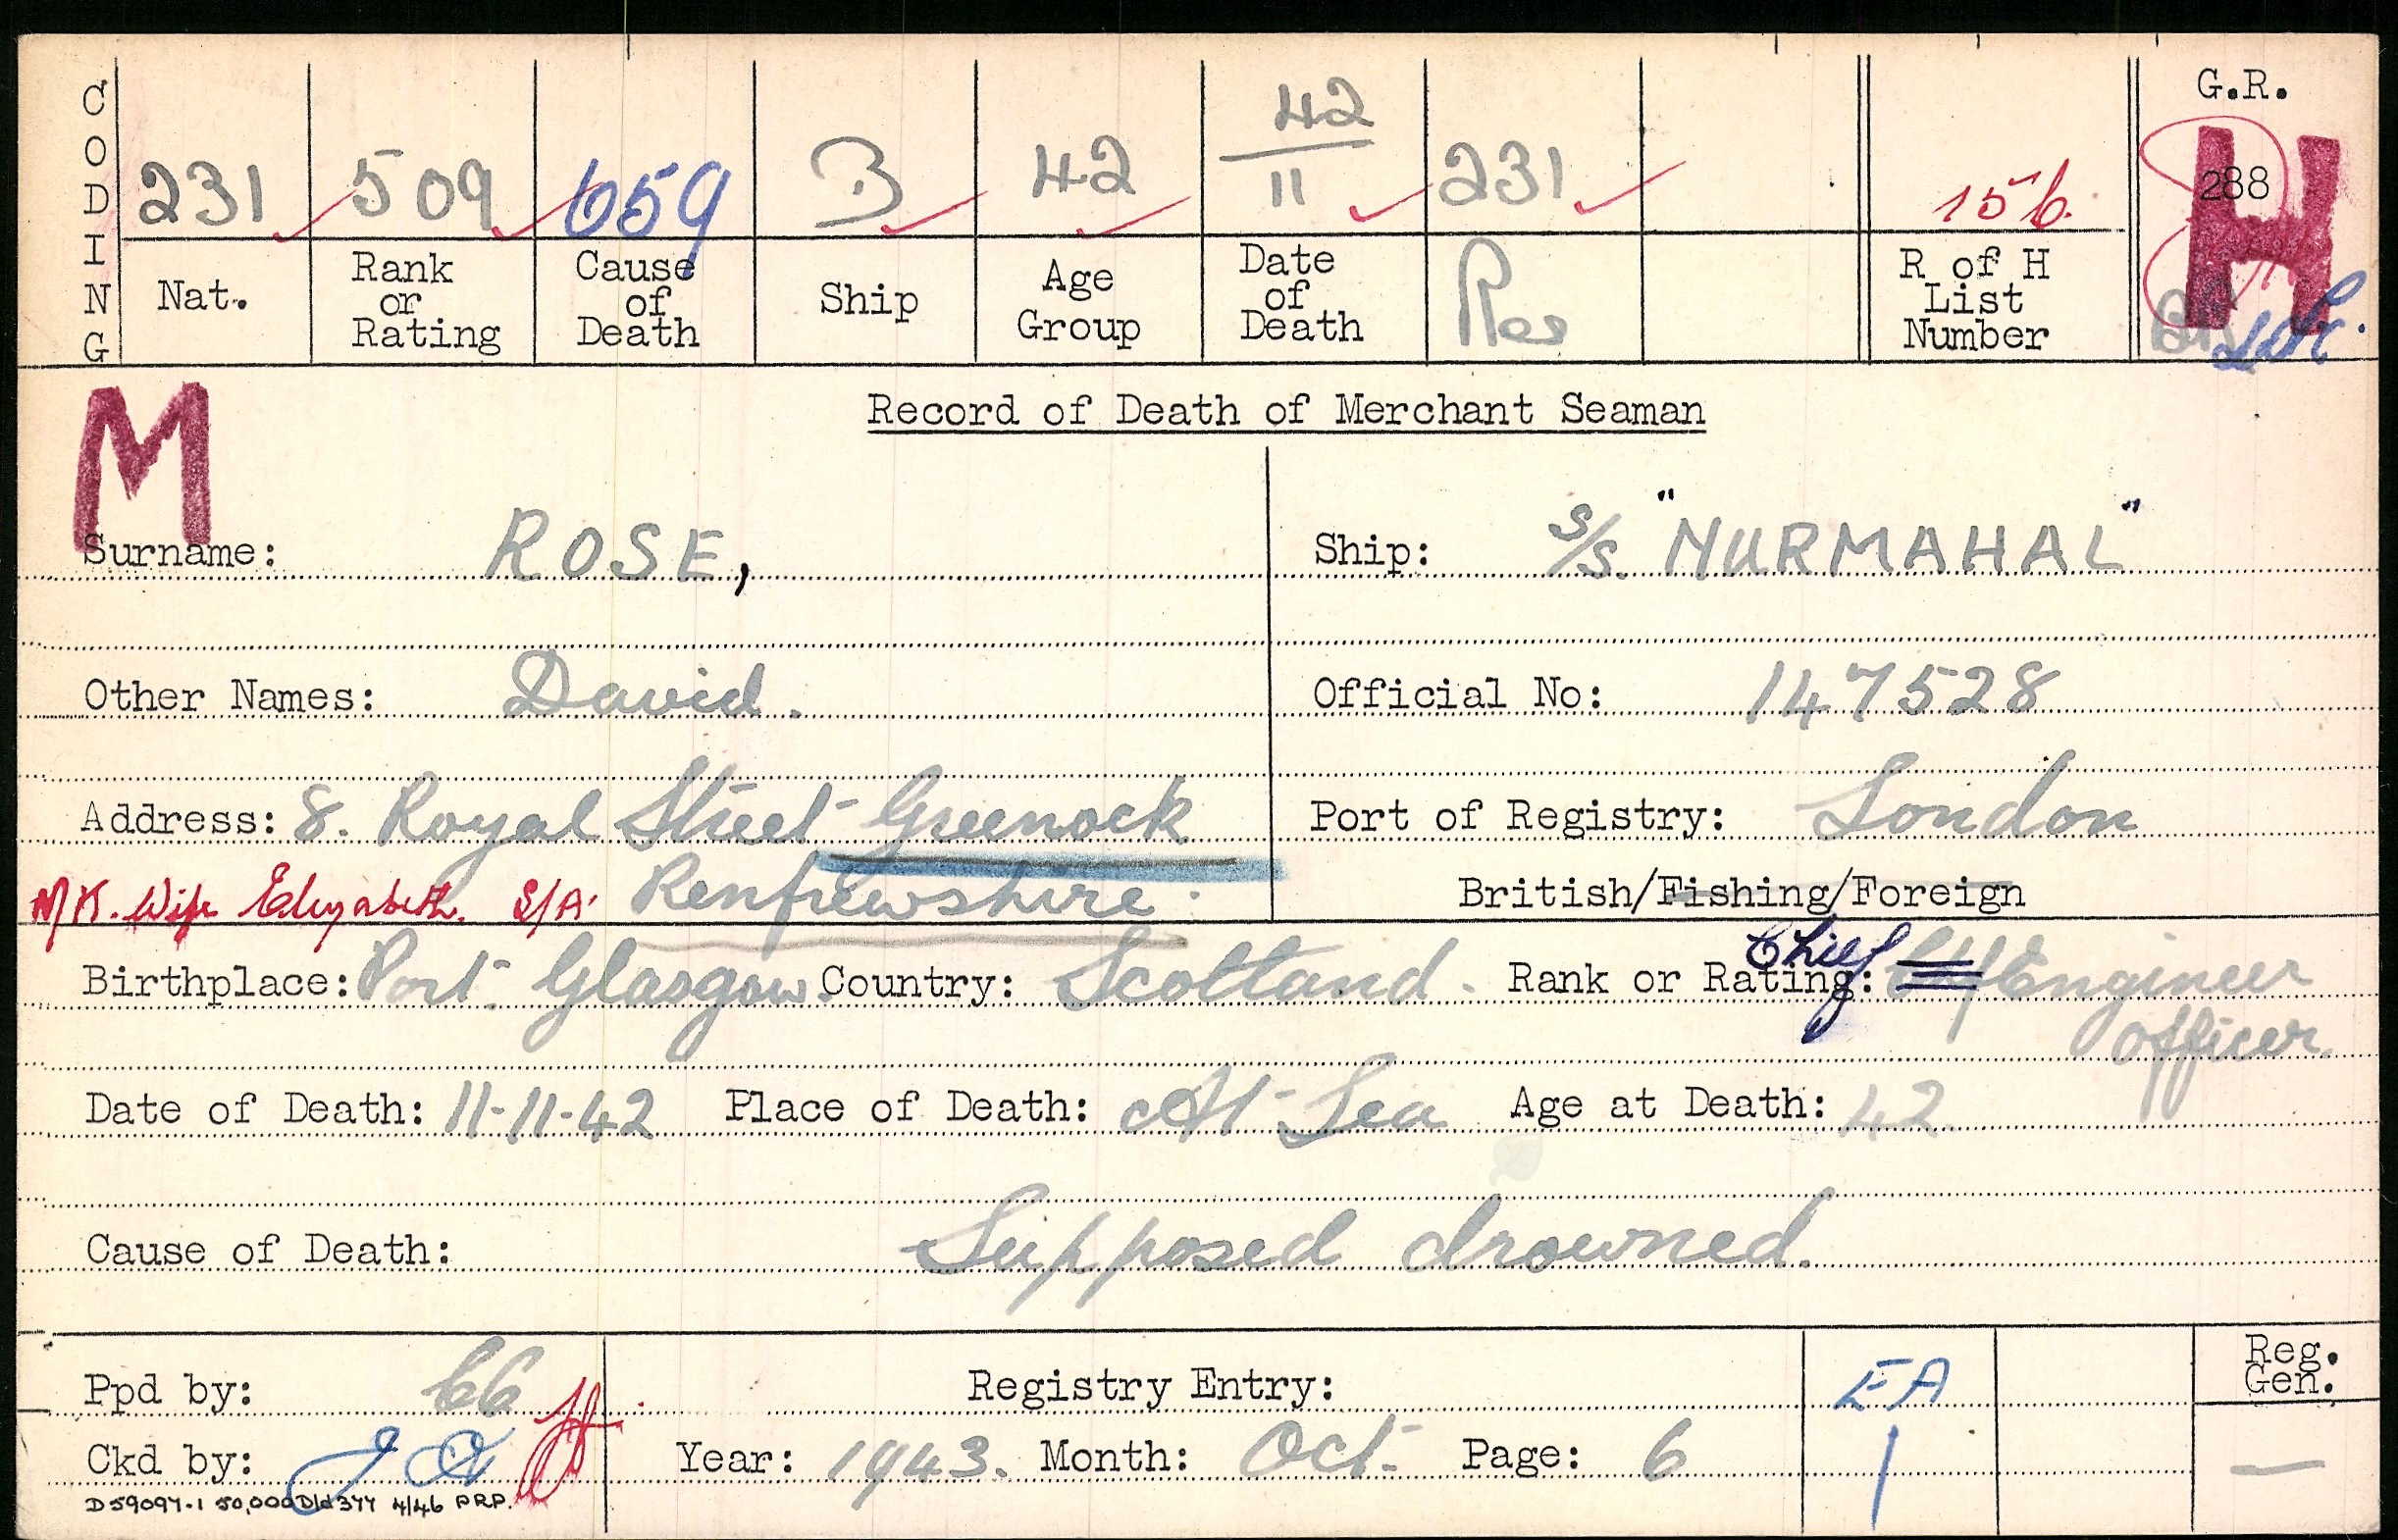 CODING
231 509 659 B 42 42/11 231 156. G.R. 288 H
Nat. Rank or Rating Cause of Death Ship Age Group Date of Death Res R of H List Number
M
Record of Death of Merchant Seaman
Surname: ROSE, Ship: S/S. "NURMAHAL"
Other Names: David. Official No: 147528
Address: 8. Royal Street Greenock Port of Registry: London
N/K. Wife Elizabeth. S/A. Renfrewshire. British/Fishing/Foreign
Birthplace: Port Glasgow. Country: Scotland. Rank or Rating: Chief Engineer
Officer.
Date of Death: 11-11-42 Place of Death: At Sea Age at Death: 42
Cause of Death: Supposed drowned.
Ppd by: Registry Entry: EA Reg. Gen.
Ckd by: Year: 1943. Month: Oct. Page: 6 1 —
D59097-1 50,000 D/d 377 4/46 P.R.P.